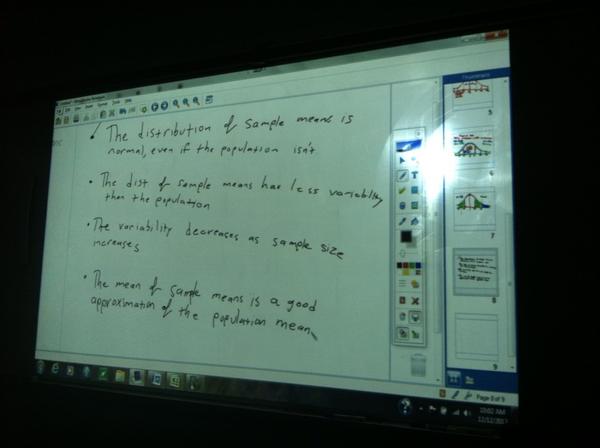 • The distribution of sample means is
normal, even if the population isn't
• The dist of sample means has less variability
than the population
• The variability decreases as sample size
increases
• The mean of sample means is a good
approximation of the population mean
Thumbnails
5
6
7
8
9
Page 8 of 9
10:02 AM